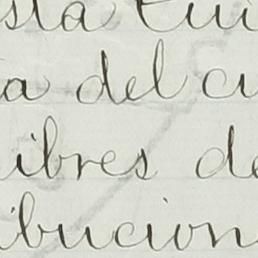 sta Cui
a del cu
ibres de
ibucion